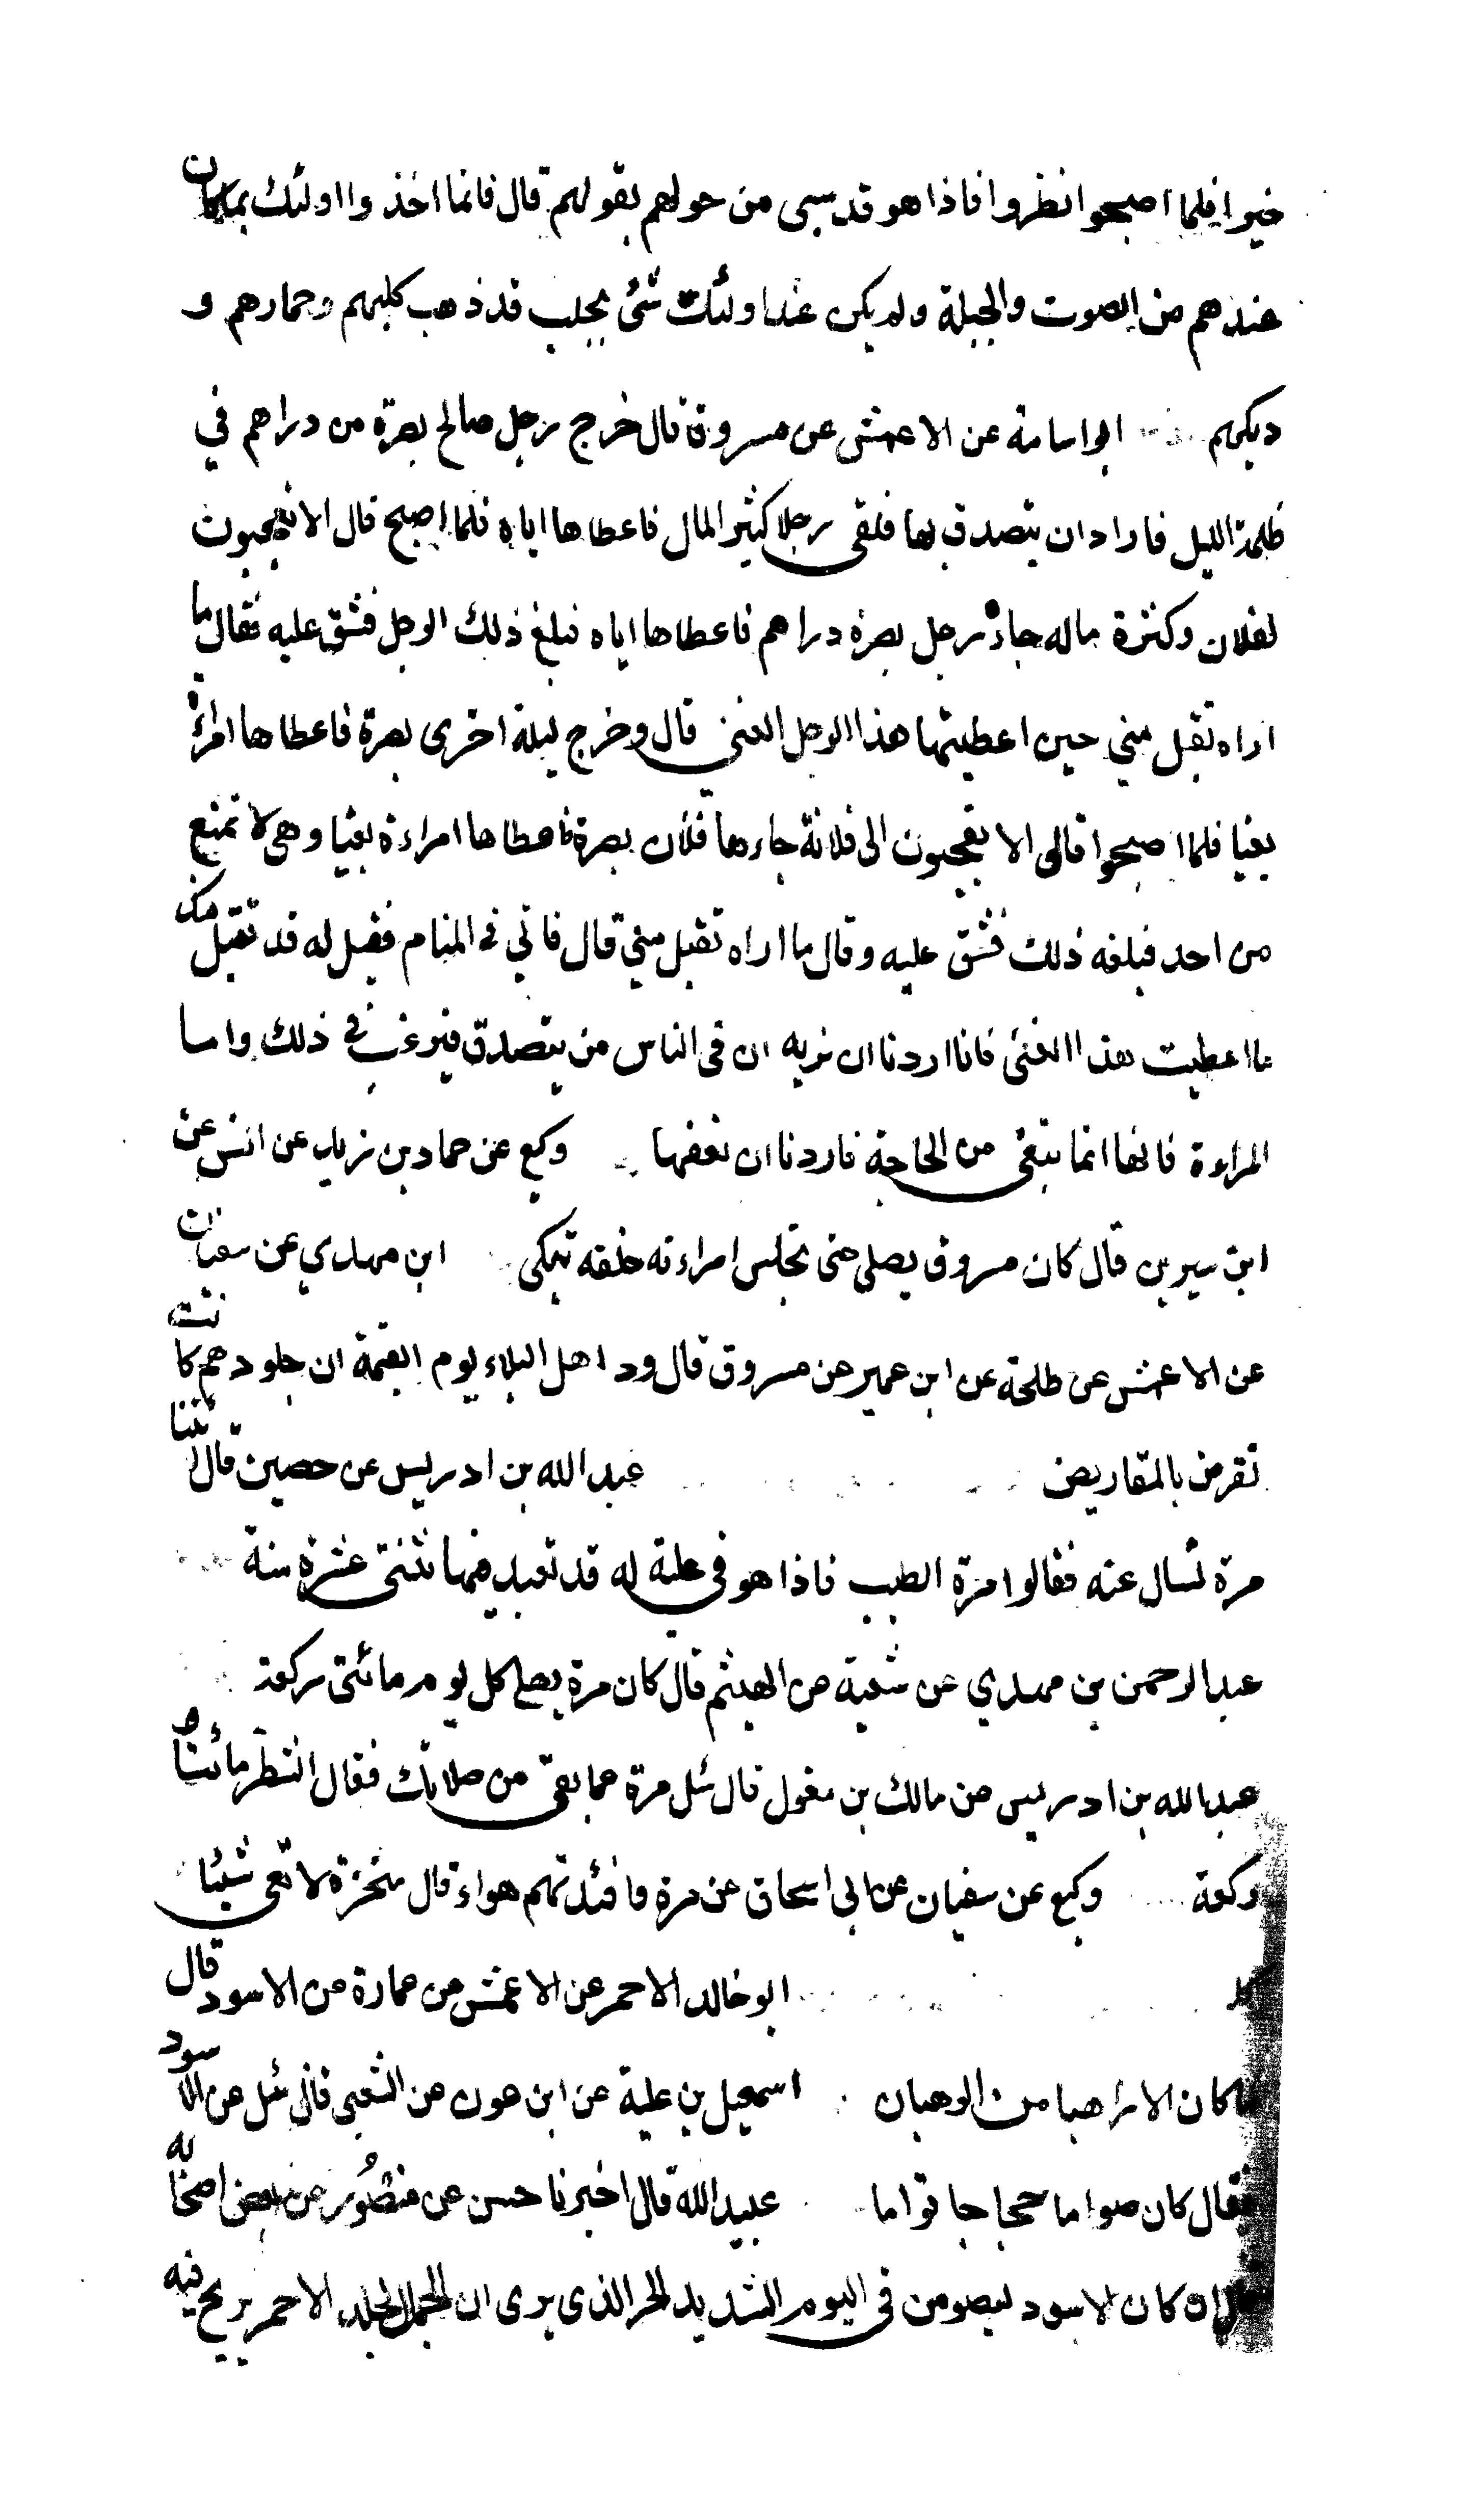 خيرا فلما اصبحوا نظروا فاذا هو قد سبى من حولهم بقولهم قال فانما اخذ وا اولئك بما كان
عندهم من الصوت والجبلة ولم يكن عند اولئك شئ يجلب قد ذهب كلبهم وحمارهم و
ديكهم ابو اسامة عن الاعمش عن مسروق قال خرج رجل صالح بصرة من دراهم في
ظلمة الليل فاراد ان يتصدق بها فلقى رجلا كثير المال فاعطاها اياه فلما اصبح قال الا تعجبون
لفلان وكثرة ماله جاءه رجل بصرة دراهم فاعطاها اياه فبلغ ذلك الرجل فشق عليه فقال ما
اراه تقبل مني حين اعطيتها هذا الرجل الغني قال وخرج ليلة اخرى بصرة فاعطاها امراة
بغيا فلما اصبحوا قال الا تعجبون الى فلانة جاءها فلان بصرة فاعطاها امراءة بغيا وهى لا تمنع
من احد فبلغه ذلك فشق عليه وقال ما اراه تقبل مني قال فاتي في المنام فقيل له قد تقبل منك
ما اعطيت هذا الغنى فانا اردنا ان نريه ان فى الناس من يتصدق فيرغب في ذلك واما
المراءة فانها انما تبتغى من الحاجة فاردنا ان نعفها وكيع عن حماد بن زيد عن انس عن
ابن سيرين قال كان مسروق يصلي حتى تجلس امراءته خلفه تبكى ابن مهدي عن سفيان
عن الاعمش عن طلحة عن ابن عمير عن مسروق قال ود اهل البلاء يوم القيمة ان جلودهم كانت
تقرض بالمقاريض عبد الله بن ادريس عن حصين قال اتينا
مرة نسال عنه فقالوا مرة الطيب فاذا هو في علية له قد تعبد فيها ثنتى عشرة سنة
عبد الرحمن بن مهدي عن شعبة عن الهيثم قال كان مرة يصلى كل يوم مائتى ركعة
عبد الله بن ادريس عن مالك بن مغول قال سئل مرة عما بقى من صلاتك فقال الشطر مائتان
ركعة وكيع عن سفيان عن ابى اسحاق عن مرة وافئدتهم هواء قال متخرقة لا تعى شيئا
ابو خالد الاحمر عن الاعمش عن عمارة عن الاسود قال
ما كان الا راهبا من الرهبان اسمعيل بن علية عن ابن عون عن الشعبى قال سئل عن الاسود
فقال كان صواما حجاجا قواما عبيد الله قال اخبرنا حسن عن منصور عن بعض اصحابه
قال ان كان الاسود ليصومن في اليوم الشديد الحر الذى يرى ان الجمل الجلد الاحمر يريح فيه